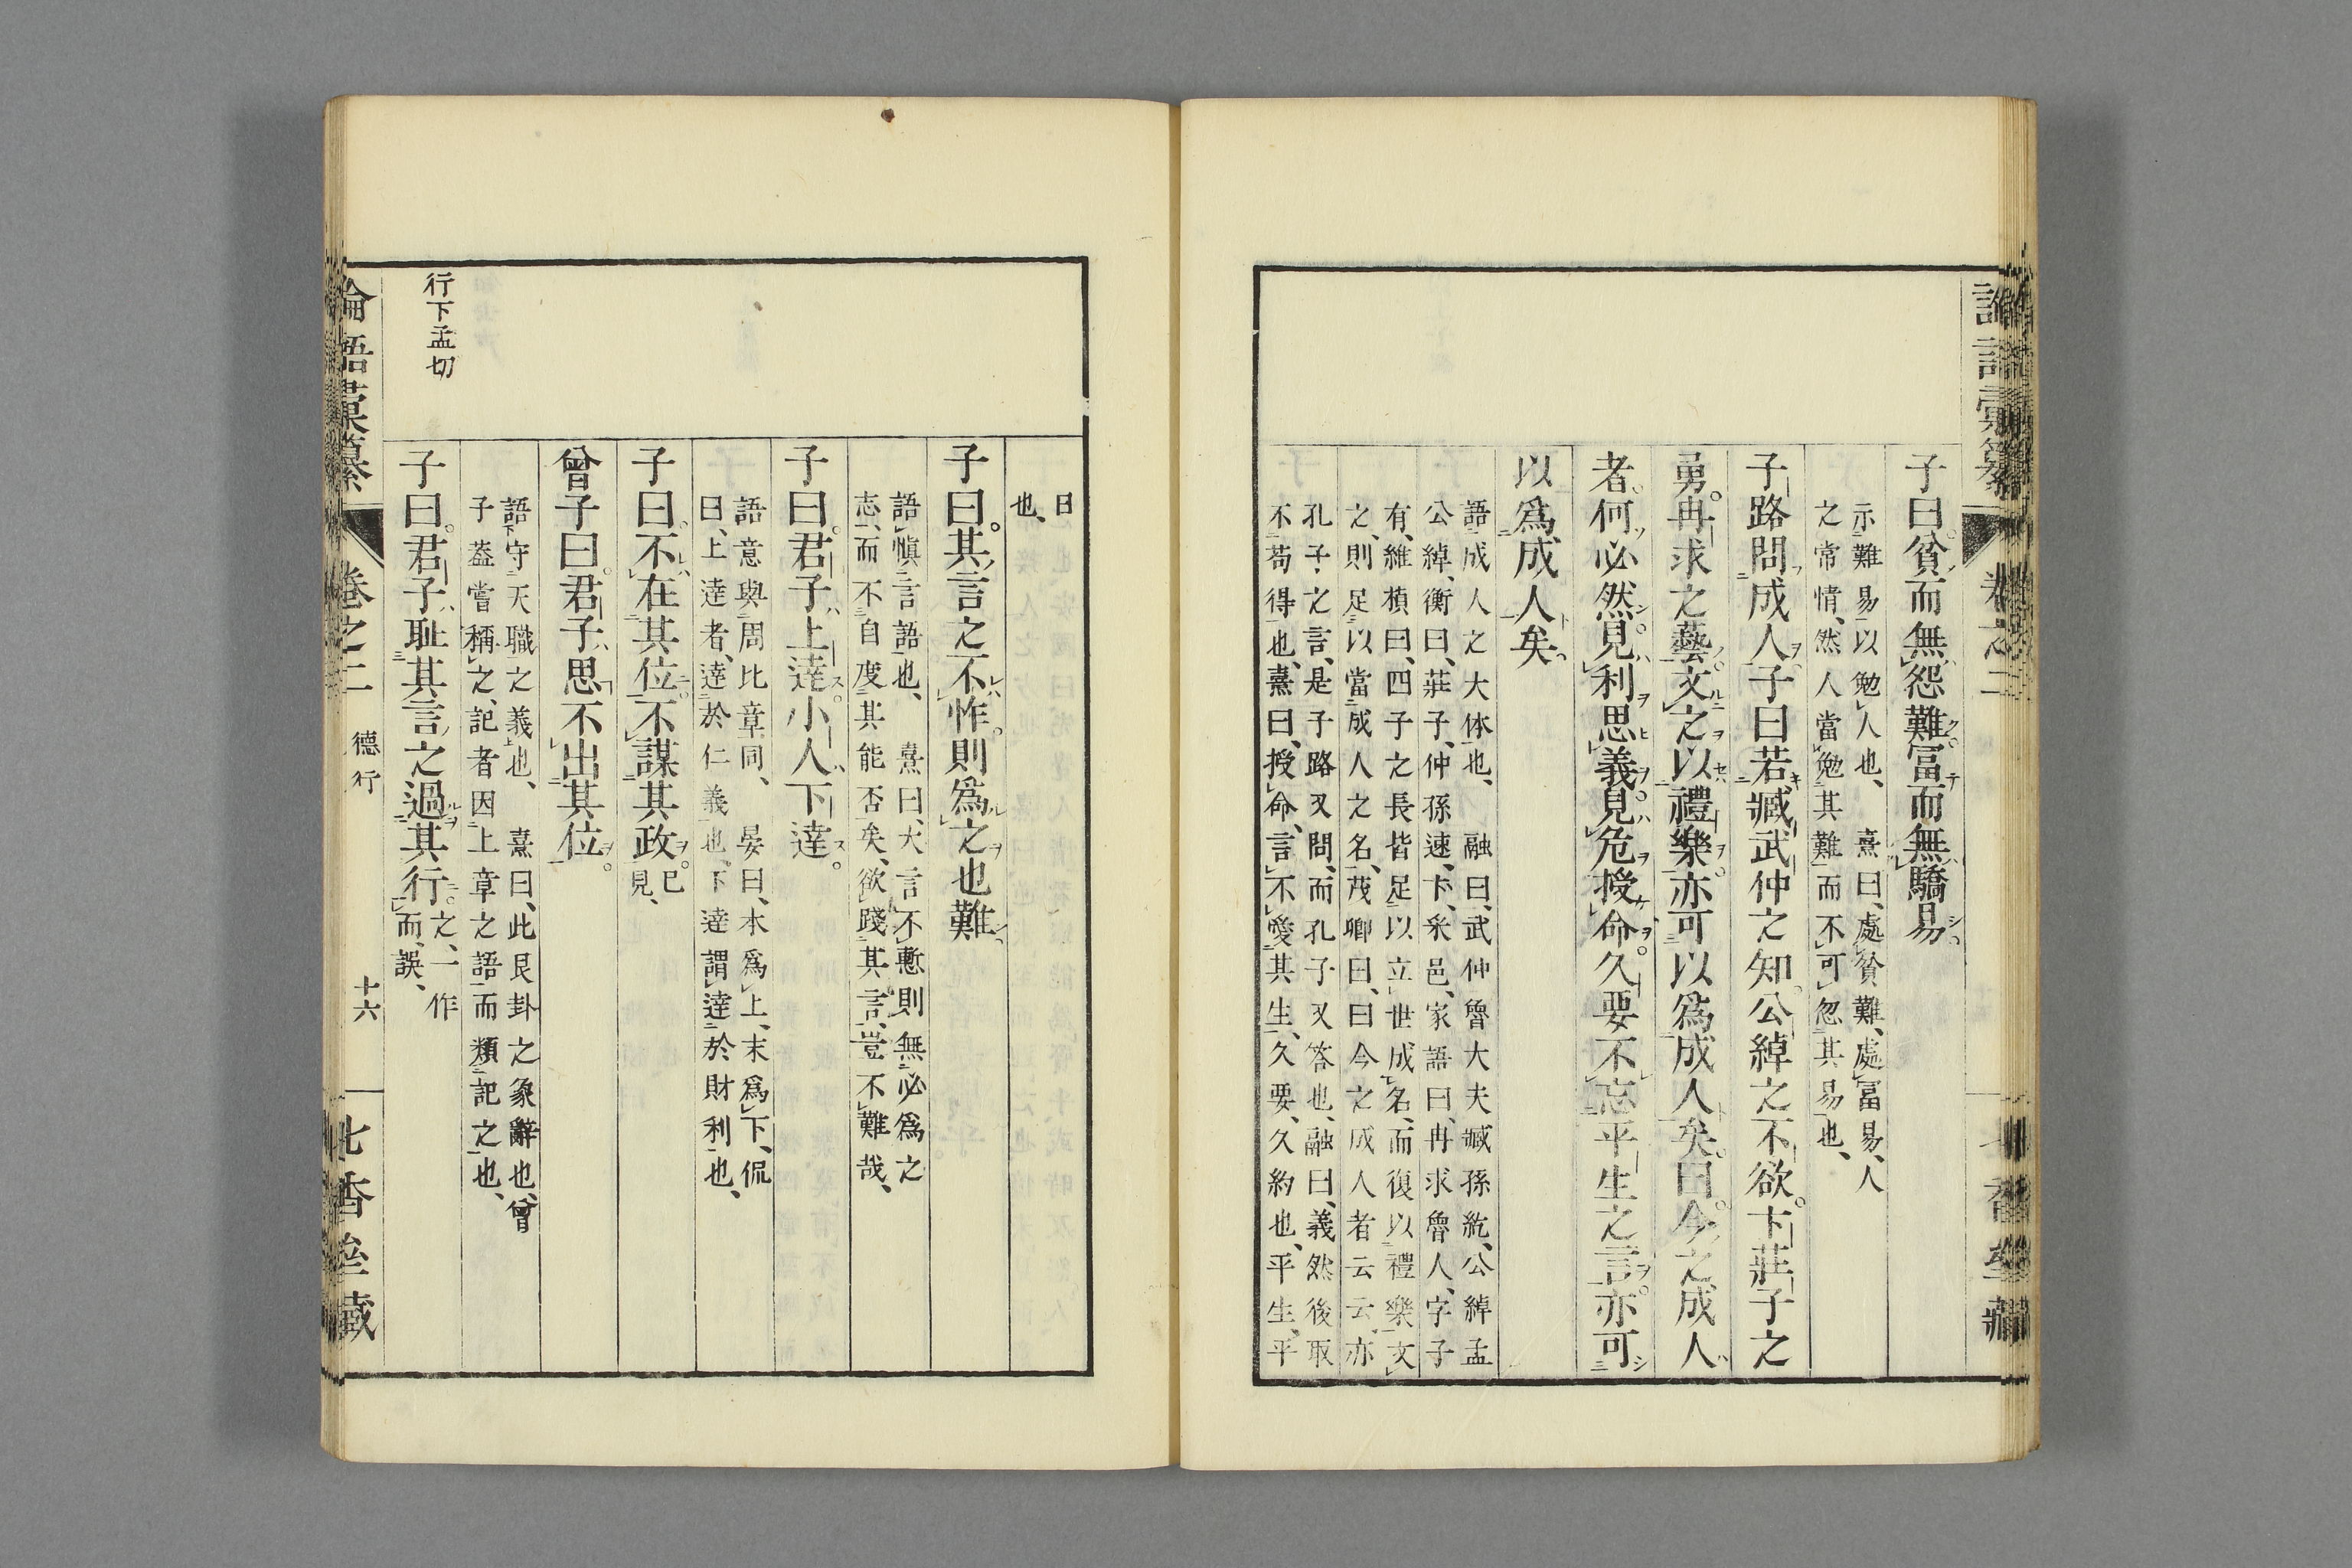 子曰貧而無怨難冨而無驕易
示難易以勉人也、熹曰、處貧難、處冨易、人
之常情、然人當勉其難而不可忽其易也、
子路問成人子曰若臧武仲之知公綽之不欲卞莊子之
勇冉求之藝文之以禮樂亦可以爲成人矣曰今之成人
者何必然見利思義見危授命久要不忘平生之言亦可
以爲成人矣
語成人之大体也、融曰、武仲魯大夫臧孫紇、公綽孟
公綽、衡曰、莊子、仲孫速、卞、采邑、家語曰、冉求魯人、字子
有、維楨曰、四子之長皆足以立世成名、而復以禮樂文
之、則足以當成人之名、茂卿曰、曰今之成人者云云、亦
孔子之言、是子路又問、而孔子又答也、融曰、義然後取
不苟得也、熹曰、授命、言不愛其生、久要、久約也、平生、平
日
也、
子曰其言之不怍則爲之也難
語愼言語也、熹曰、大言不慙則無必爲之
志、而不自度其能否矣、欲踐其言、豈不難哉、
子曰君子上達小人下達
語意與周比章同、晏曰、本爲上、末爲下、侃
曰、上達者、達於仁義也、下達謂達於財利也、
子曰不在其位不謀其政已見、
曾子曰君子思不出其位
語守天職之義也、熹曰、此艮卦之象辭也、曾
子葢嘗稱之、記者因上章之語而類記之也、
行下孟切
子曰君子耻其言之過其行之、一作而、誤、
論語彙纂 卷之二 德行 十六